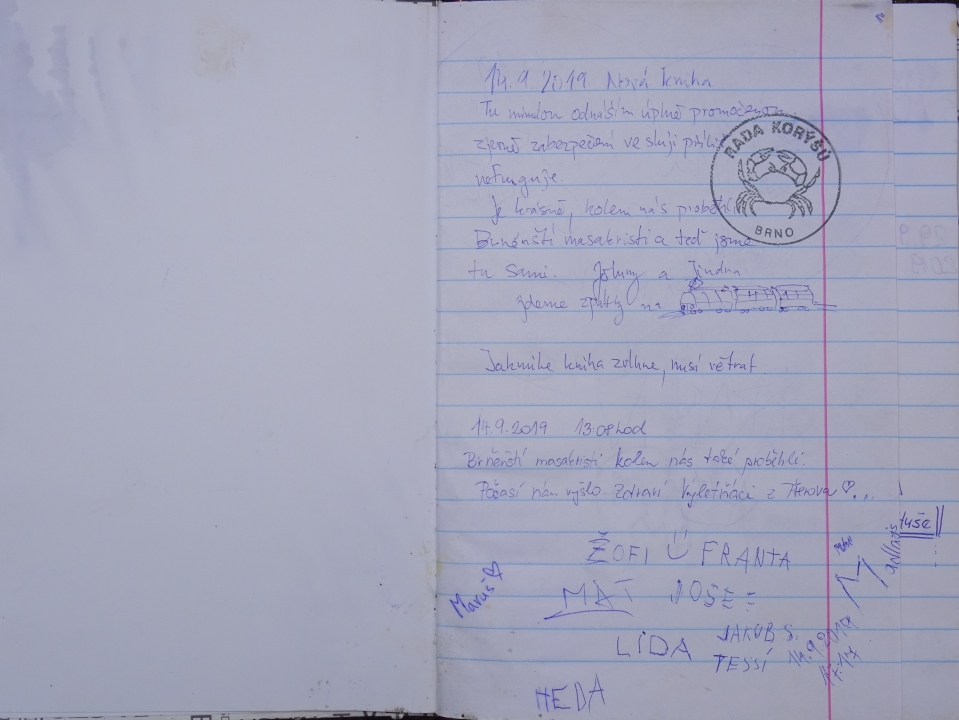 14.9.2019 Nová kniha
Tu minulou odnáším úplně promočenou
zjevně zabezpečení ve skříji
nefunguje.
Je krásně, kolem nás proběhli
Brněnští masakristi a teď jsme
tu sami. Johny a Jindra
Jdeme zpátky na
Jakmile kniha zvlhne, musí větrat
14.9.2019 13:08 hod
Brněnští masakristi kolem nás také proběhli.
Počasí nám vyšlo. Zdraví Výletňáci z
RADA KORÝŠŮ
BRNO
ŽOFI FRANTA
MAT
LÍDA JAKUB S.
TESSÍ
HEDA
Maruš
14.9.2019
29.9
2019